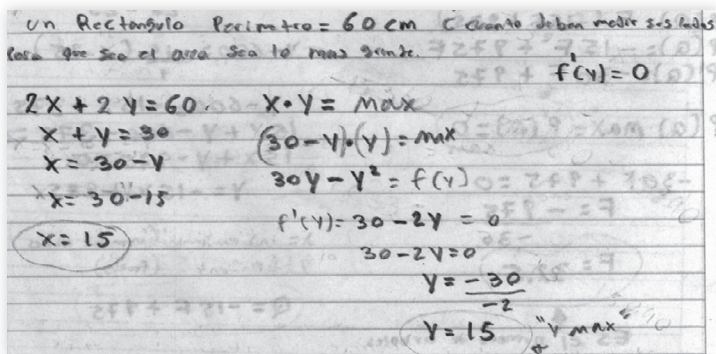 Un Rectangulo Perimetro = 60 cm ¿ cuanto deben medir sus lados
Para que sea el area sea lo mas grande.
f'(y) = 0
2x + 2y = 60.
x + y = 30
x = 30 - y
x = 30 - 15
x = 15
x · y = max
(30 - y) · (y) = max
30y - y² = f(y)
f'(y) = 30 - 2y = 0
30 - 2y = 0
y = -30 / -2
y = 15 "y max"